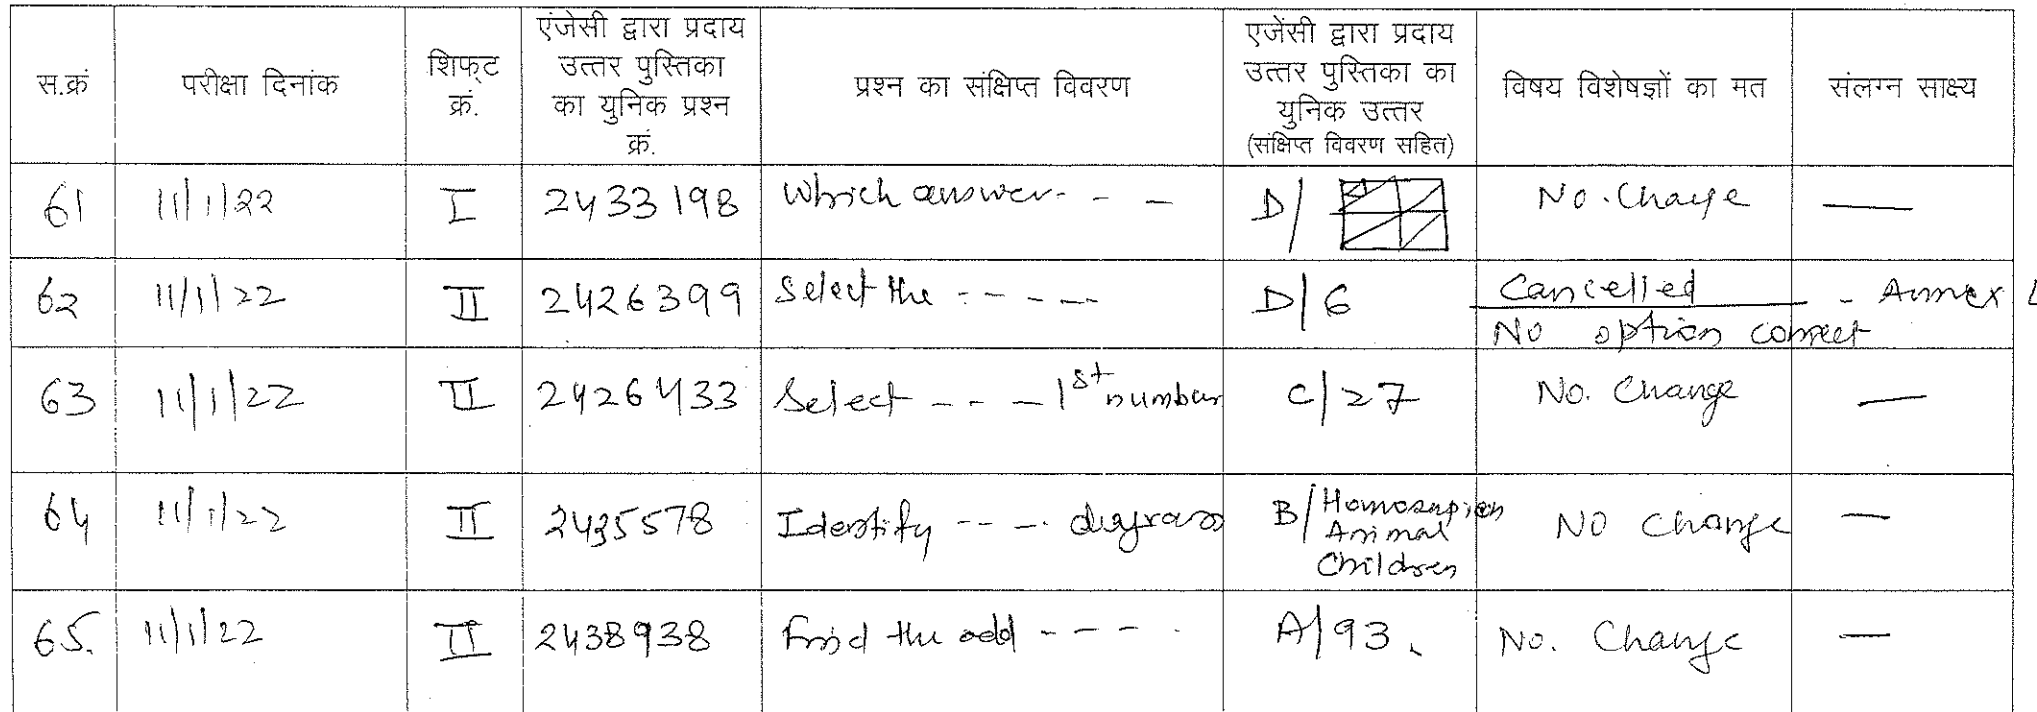 स.क्रं
परीक्षा दिनांक
शिफ्ट
क्रं.
एंजेसी द्वारा प्रदाय
उत्तर पुस्तिका
का युनिक प्रश्न
क्रं.
प्रश्न का संक्षिप्त विवरण
एजेंसी द्वारा प्रदाय
उत्तर पुस्तिका का
युनिक उत्तर
(संक्षिप्त विवरण सहित)
विषय विशेषज्ञों का मत
संलग्न साक्ष्य
61 11/1/22 I 2433198 Which answer - - D/ No. Change —
62 11/1/22 II 2426399 Select the - - - - - D/6 Cancelled - Annex
No option correct
63 11/1/22 II 2426433 Select - - - 1st number C/27 No. Change —
64 11/1/22 II 2435578 Identify - - - B/ Homosapien
Animal
Children
No Change —
65. 11/1/22 II 2438938 Find the odd - - - - A/93. No. Change —